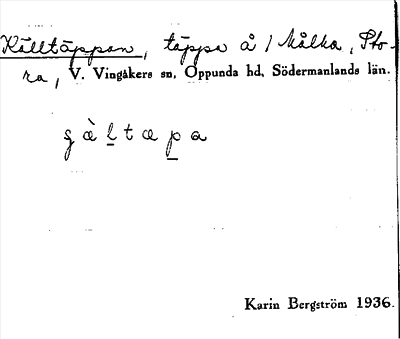 Källtäppan, täppa å 1 Målka, Sto-
ra, V. Vingåkers sn, Oppunda hd, Södermanlands län.
gὰltæpa
Karin Bergström 1936.